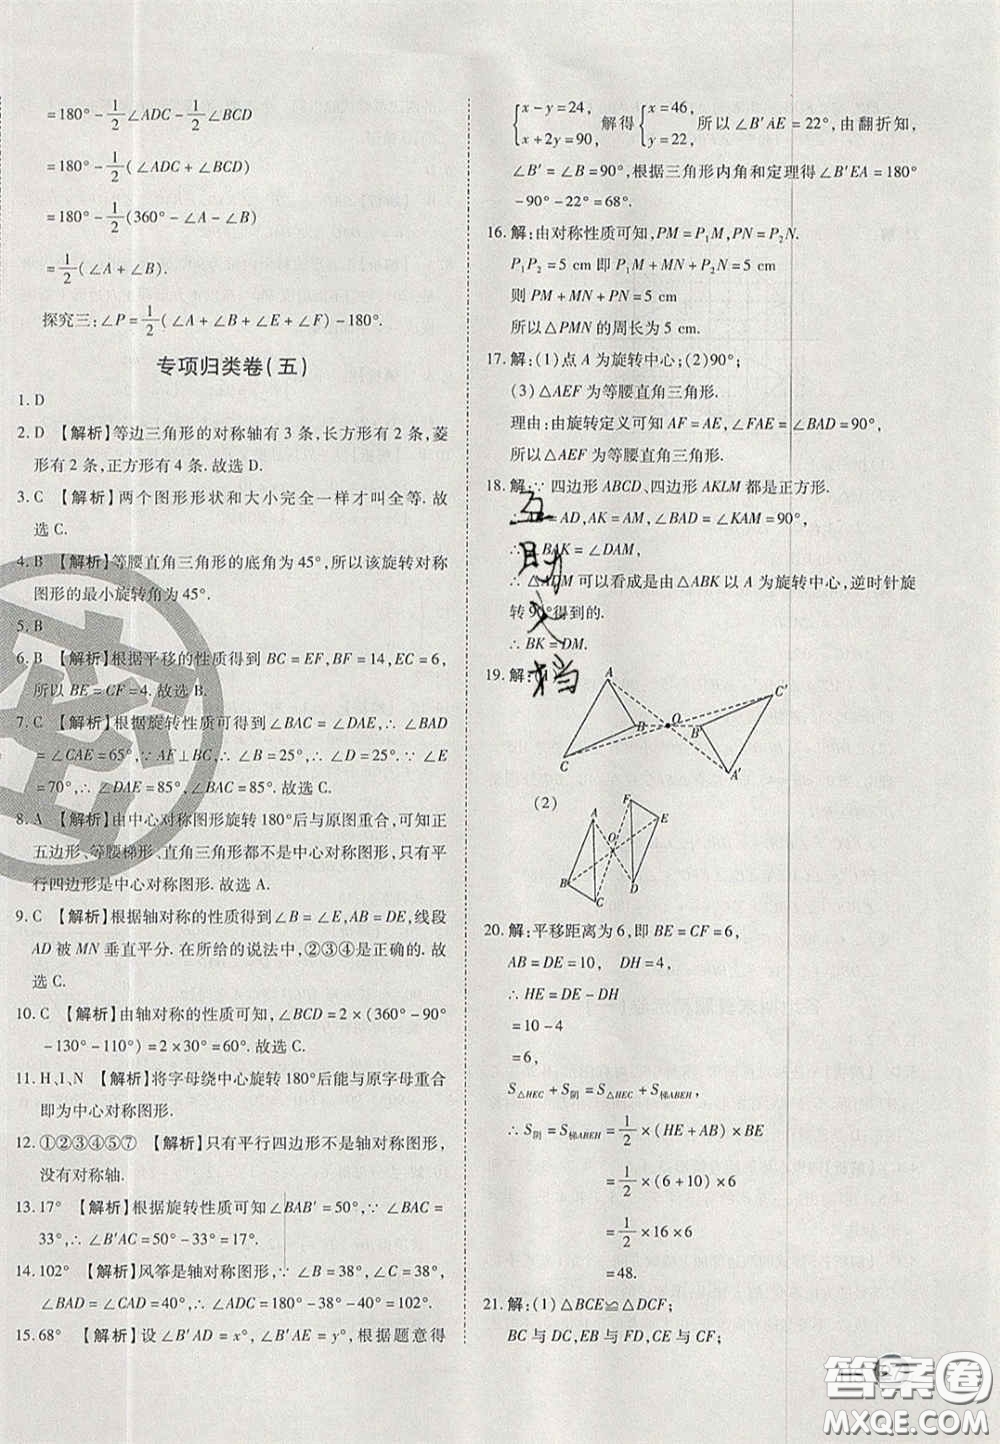 =180°-1/2∠ADC-1/2∠BCD
=180°-1/2(∠ADC+∠BCD)
=180°-1/2(360°-∠A-∠B)
=1/2(∠A+∠B).
探究三:∠P=1/2(∠A+∠B+∠E+∠F)-180°.
专项归类卷(五)
1. D
2. D 【解析】等边三角形的对称轴有 3 条,长方形有 2 条,菱
形有 2 条,正方形有 4 条.故选 D.
3. C 【解析】两个图形形状和大小完全一样才叫全等.故
选 C.
4. B 【解析】等腰直角三角形的底角为 45°,所以该旋转对称
图形的最小旋转角为 45°.
5. B
6. B 【解析】根据平移的性质得到 BC=EF,BF=14,EC=6,
所以 BE=CF=4.故选 B.
7. C 【解析】根据旋转性质可得到∠BAC=∠DAE,∴∠BAD
=∠CAE=65°,∵AF⊥BC,∴∠B=25°,∴∠D=25°,∵∠E
=70°,∴∠DAE=85°,∴∠BAC=85°.故选 C.
8. A 【解析】由中心对称图形旋转 180°后与原图重合,可知正
五边形、等腰梯形、直角三角形都不是中心对称图形,只有平
行四边形是中心对称图形.故选 A.
9. C 【解析】根据轴对称的性质得到∠B=∠E,AB=DE,线段
AD 被 MN 垂直平分.在所给的说法中,②③④是正确的.故
选 C.
10. C 【解析】由轴对称的性质可知,∠BCD=2×(360°-90°
-130°-110°)=2×30°=60°.故选 C.
11. H、I、N 【解析】将字母绕中心旋转 180°后能与原字母重合
即为中心对称图形.
12. ①②③④⑤⑦ 【解析】只有平行四边形不是轴对称图形,
没有对称轴.
13. 17° 【解析】根据旋转性质可知∠BAB′=50°,∵∠BAC=
33°,∴∠B′AC=50°-33°=17°.
14. 102° 【解析】风筝是轴对称图形,∴∠B=38°,∠C=38°,
∠BAD=∠CAD=40°,∴∠ADB=180°-38°-40°=102°.
15. 68° 【解析】设∠B′AD=x°,∠B′AE=y°,根据题意得
{x-y=24, x+2y=90, 解得{x=46, y=22, 所以∠B′AE=22°,由翻折知,
∠B′=∠B=90°,根据三角形内角和定理得∠B′EA=180°
-90°-22°=68°.
16. 解:由对称性质可知,PM=P₁M,PN=P₂N.
P₁P₂=5 cm 即 P₁M+MN+P₂N=5 cm
则 PM+MN+PN=5 cm
所以△PMN 的周长为 5 cm.
17. 解:(1)点 A 为旋转中心;(2)90°;
(3)△AEF 为等腰直角三角形.
理由:由旋转定义可知 AF=AE,∠FAE=∠BAD=90°,
所以△AEF 为等腰直角三角形.
18. 解:∵四边形 ABCD、四边形 AKLM 都是正方形.
=AD,AK=AM,∠BAD=∠KAM=90°,
∴∠BAK=∠DAM,
∴ 可以看成是由△ABK 以 A 为旋转中心,逆时针旋
转 90°得到的.
∴BK=DM.
五月文档
19. 解:
A
B
C
O
B′
C′
A′
(2)
A
F
E
O
B
C
D
20. 解:平移距离为 6,即 BE=CF=6,
AB=DE=10, DH=4,
∴HE=DE-DH
=10-4
=6,
S△HEC+S阴=S△HEC+S梯ABEH
∴S阴=S梯ABEH=1/2×(HE+AB)×BE
=1/2×(6+10)×6
=1/2×16×6
=48.
21. 解:(1)△BCE≌△DCF;
BC 与 DC,EB 与 FD,CE 与 CF;
答案圈
MXQE.COM